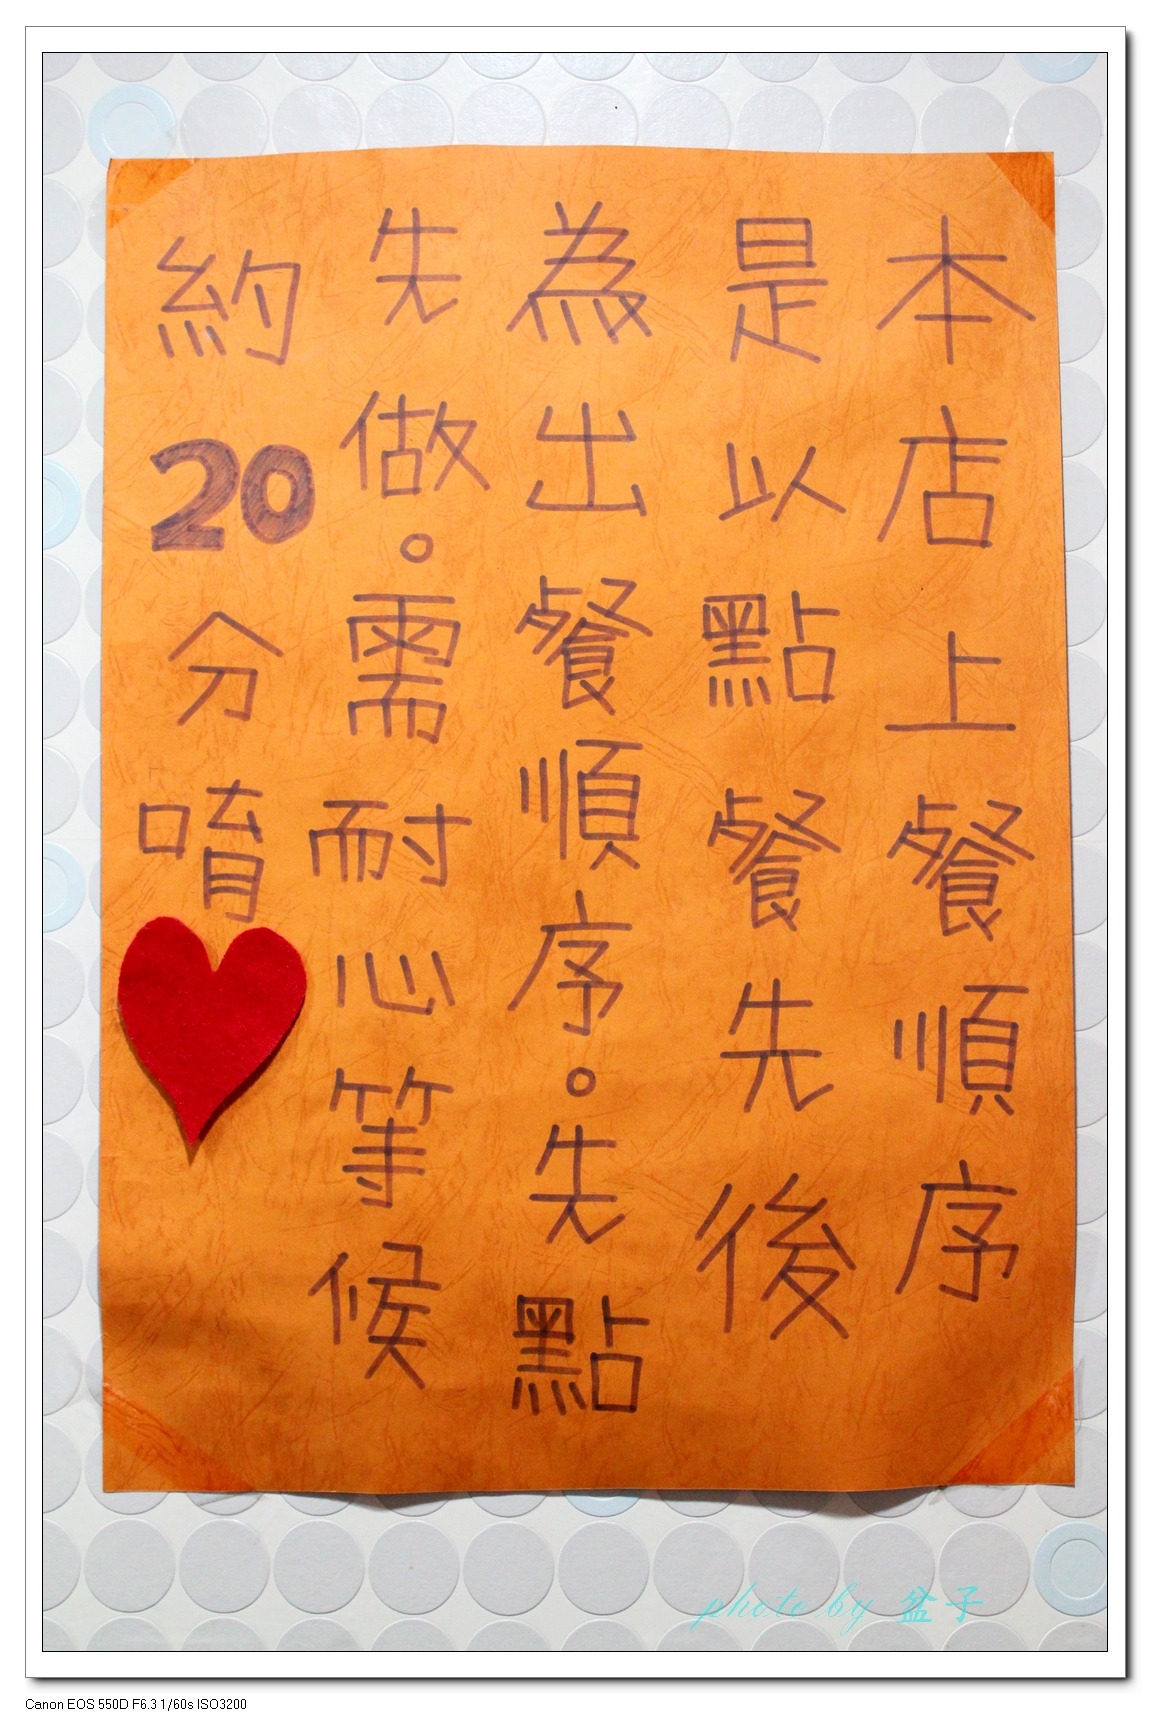 本店上餐順序
是以點餐先後
為出餐順序。先點
先做。需耐心等候
約20分唷
photo by 盆子
Canon EOS 550D F6.3 1/60s ISO3200